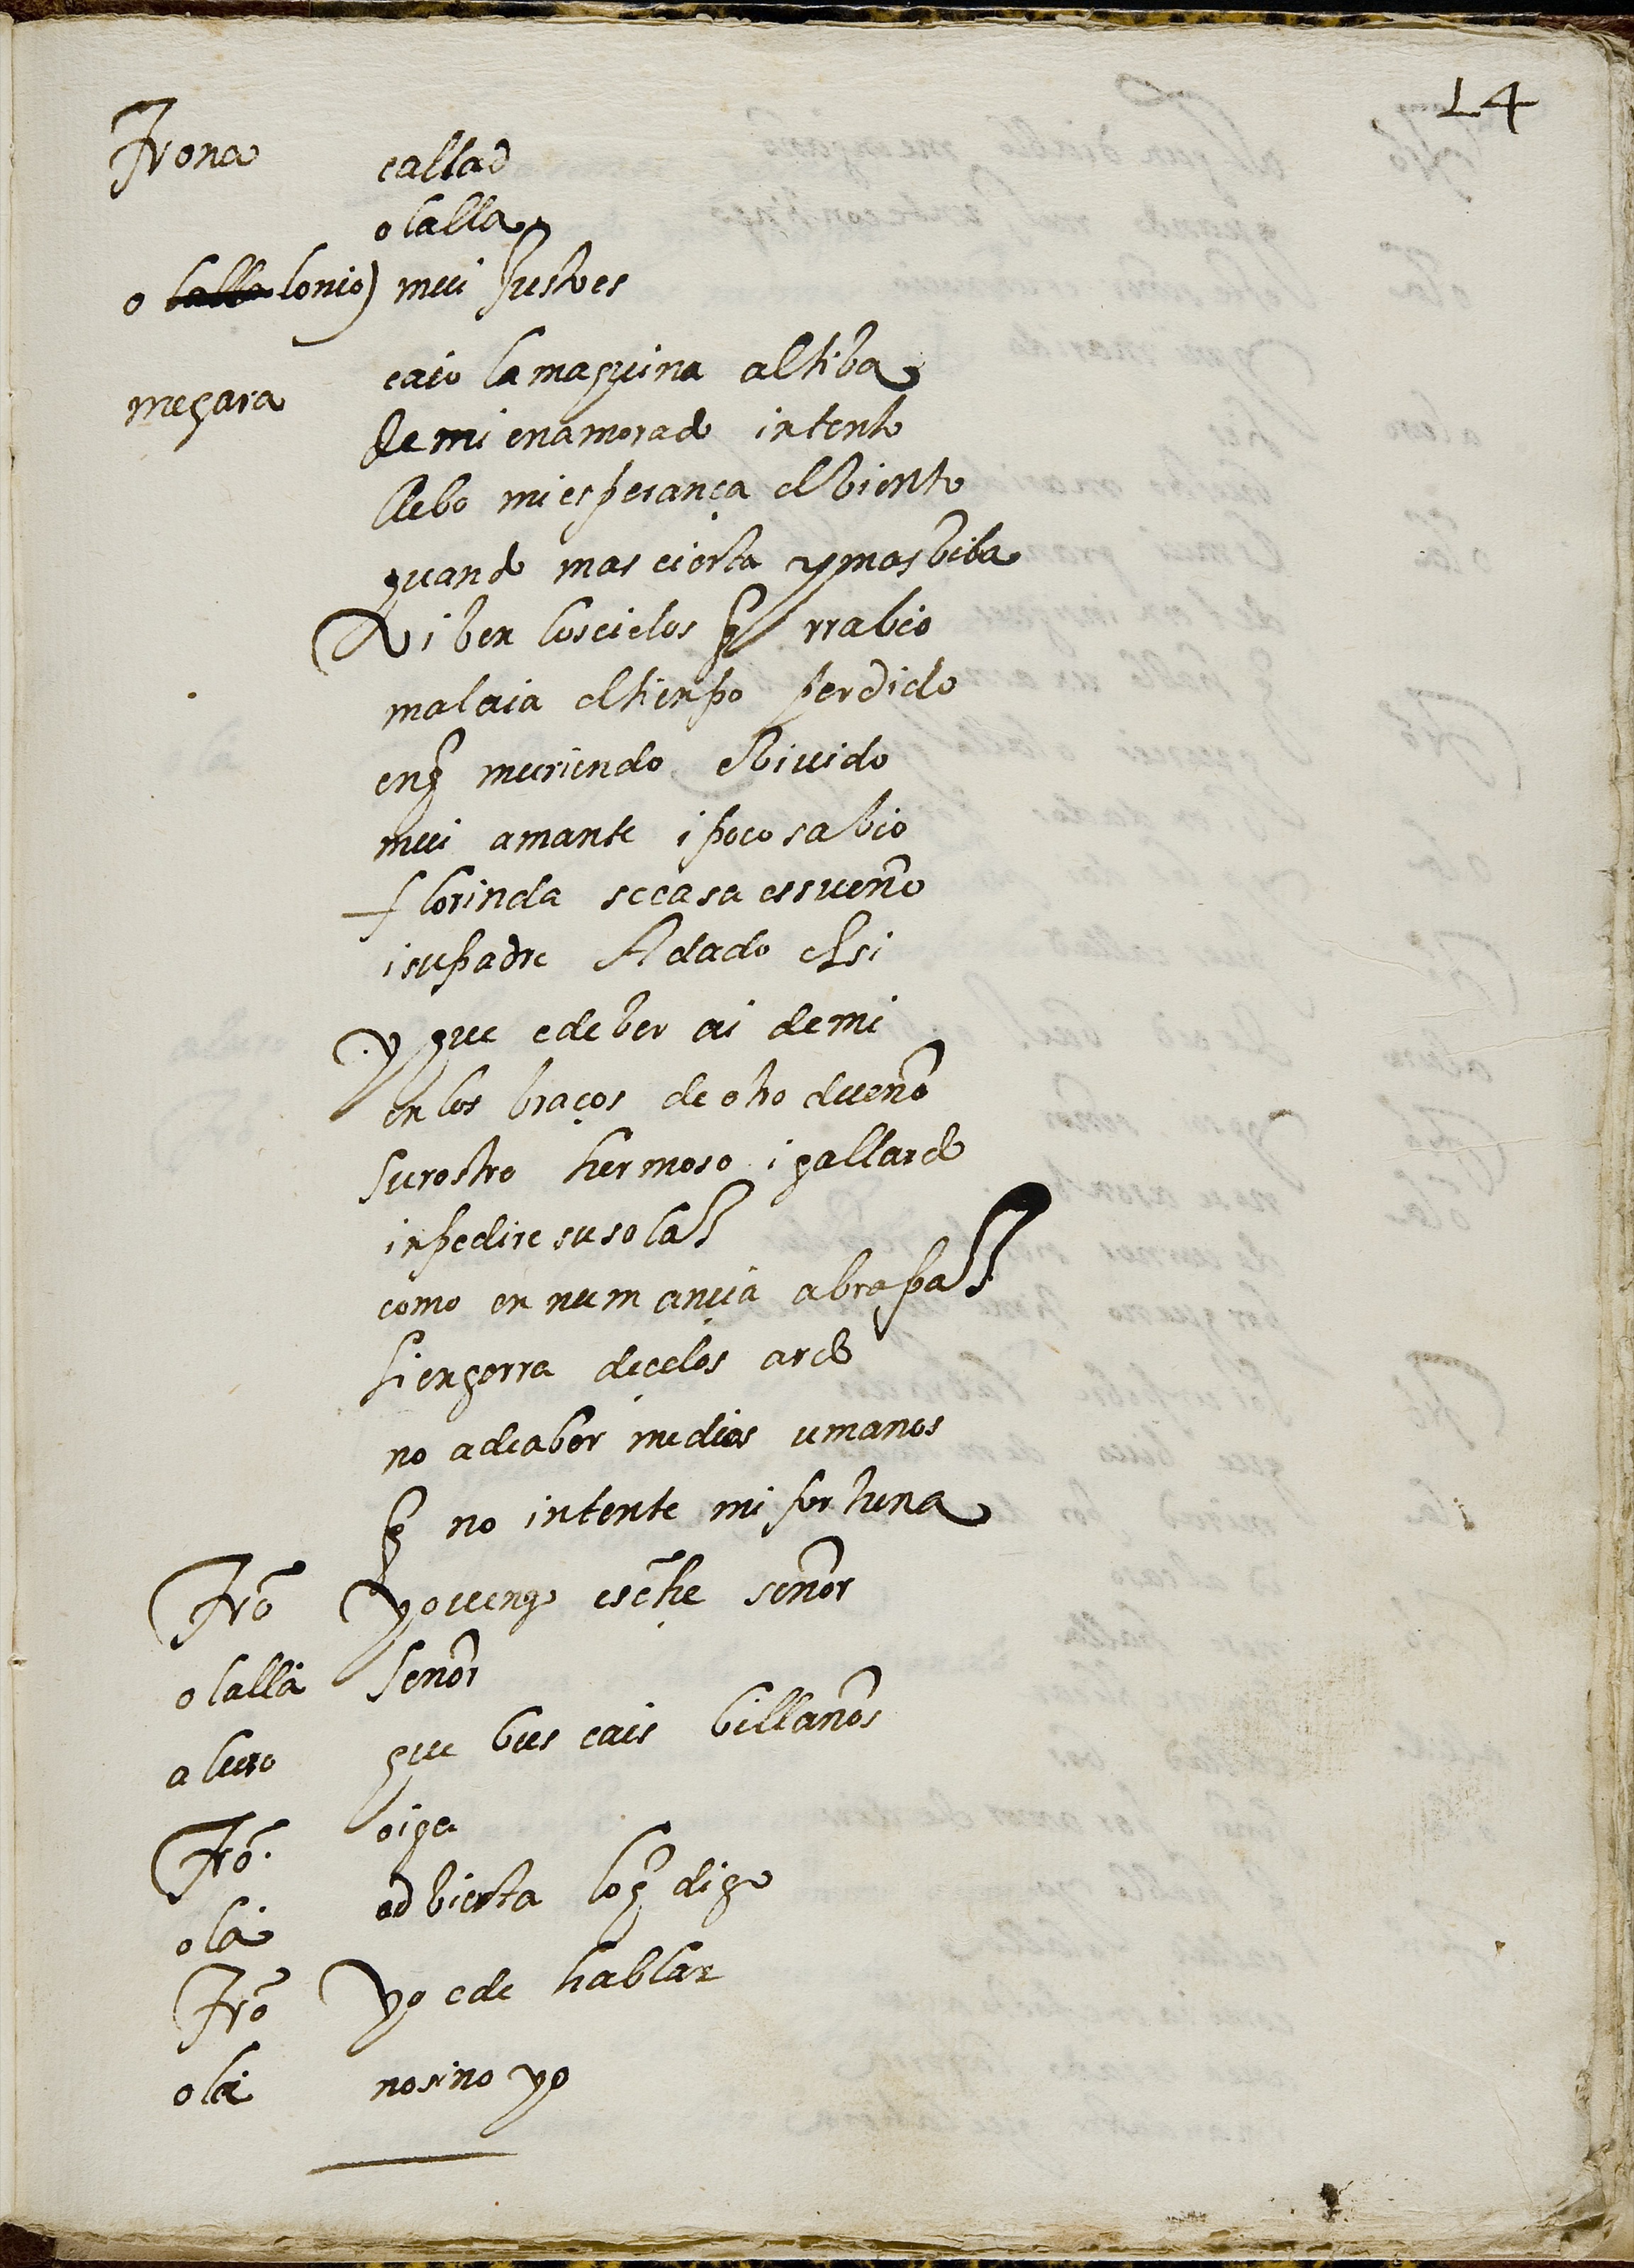 14
Frona callad
olalla
o lalla lonio) mui Justo es
megara caio la maquina altiba
de mi enamorado intento
llebo mi esperança el biento
quando mas cierta y mas biba
biben los cielos q̃ rrabio
mal aia el tienpo perdido
en q̃ muriendo e bivido
mui amante i poco sabio
florinda se casa es sueño
i su padre A dado el si
y que e de ber ai de mi
en los braços de otro dueño
su rostro hermoso i gallardo
inpedire su solaz
como en numançia
si en gorra de celos ardo
no a de aber medios umanos
q̃ no intente mi fortuna
Fro yo vengo señor
olalla Señor
aluro que buscais billanos
Fro. oiga
ola adbierta lo q̃ digo
Fro yo e de hablar
ola no sino yo